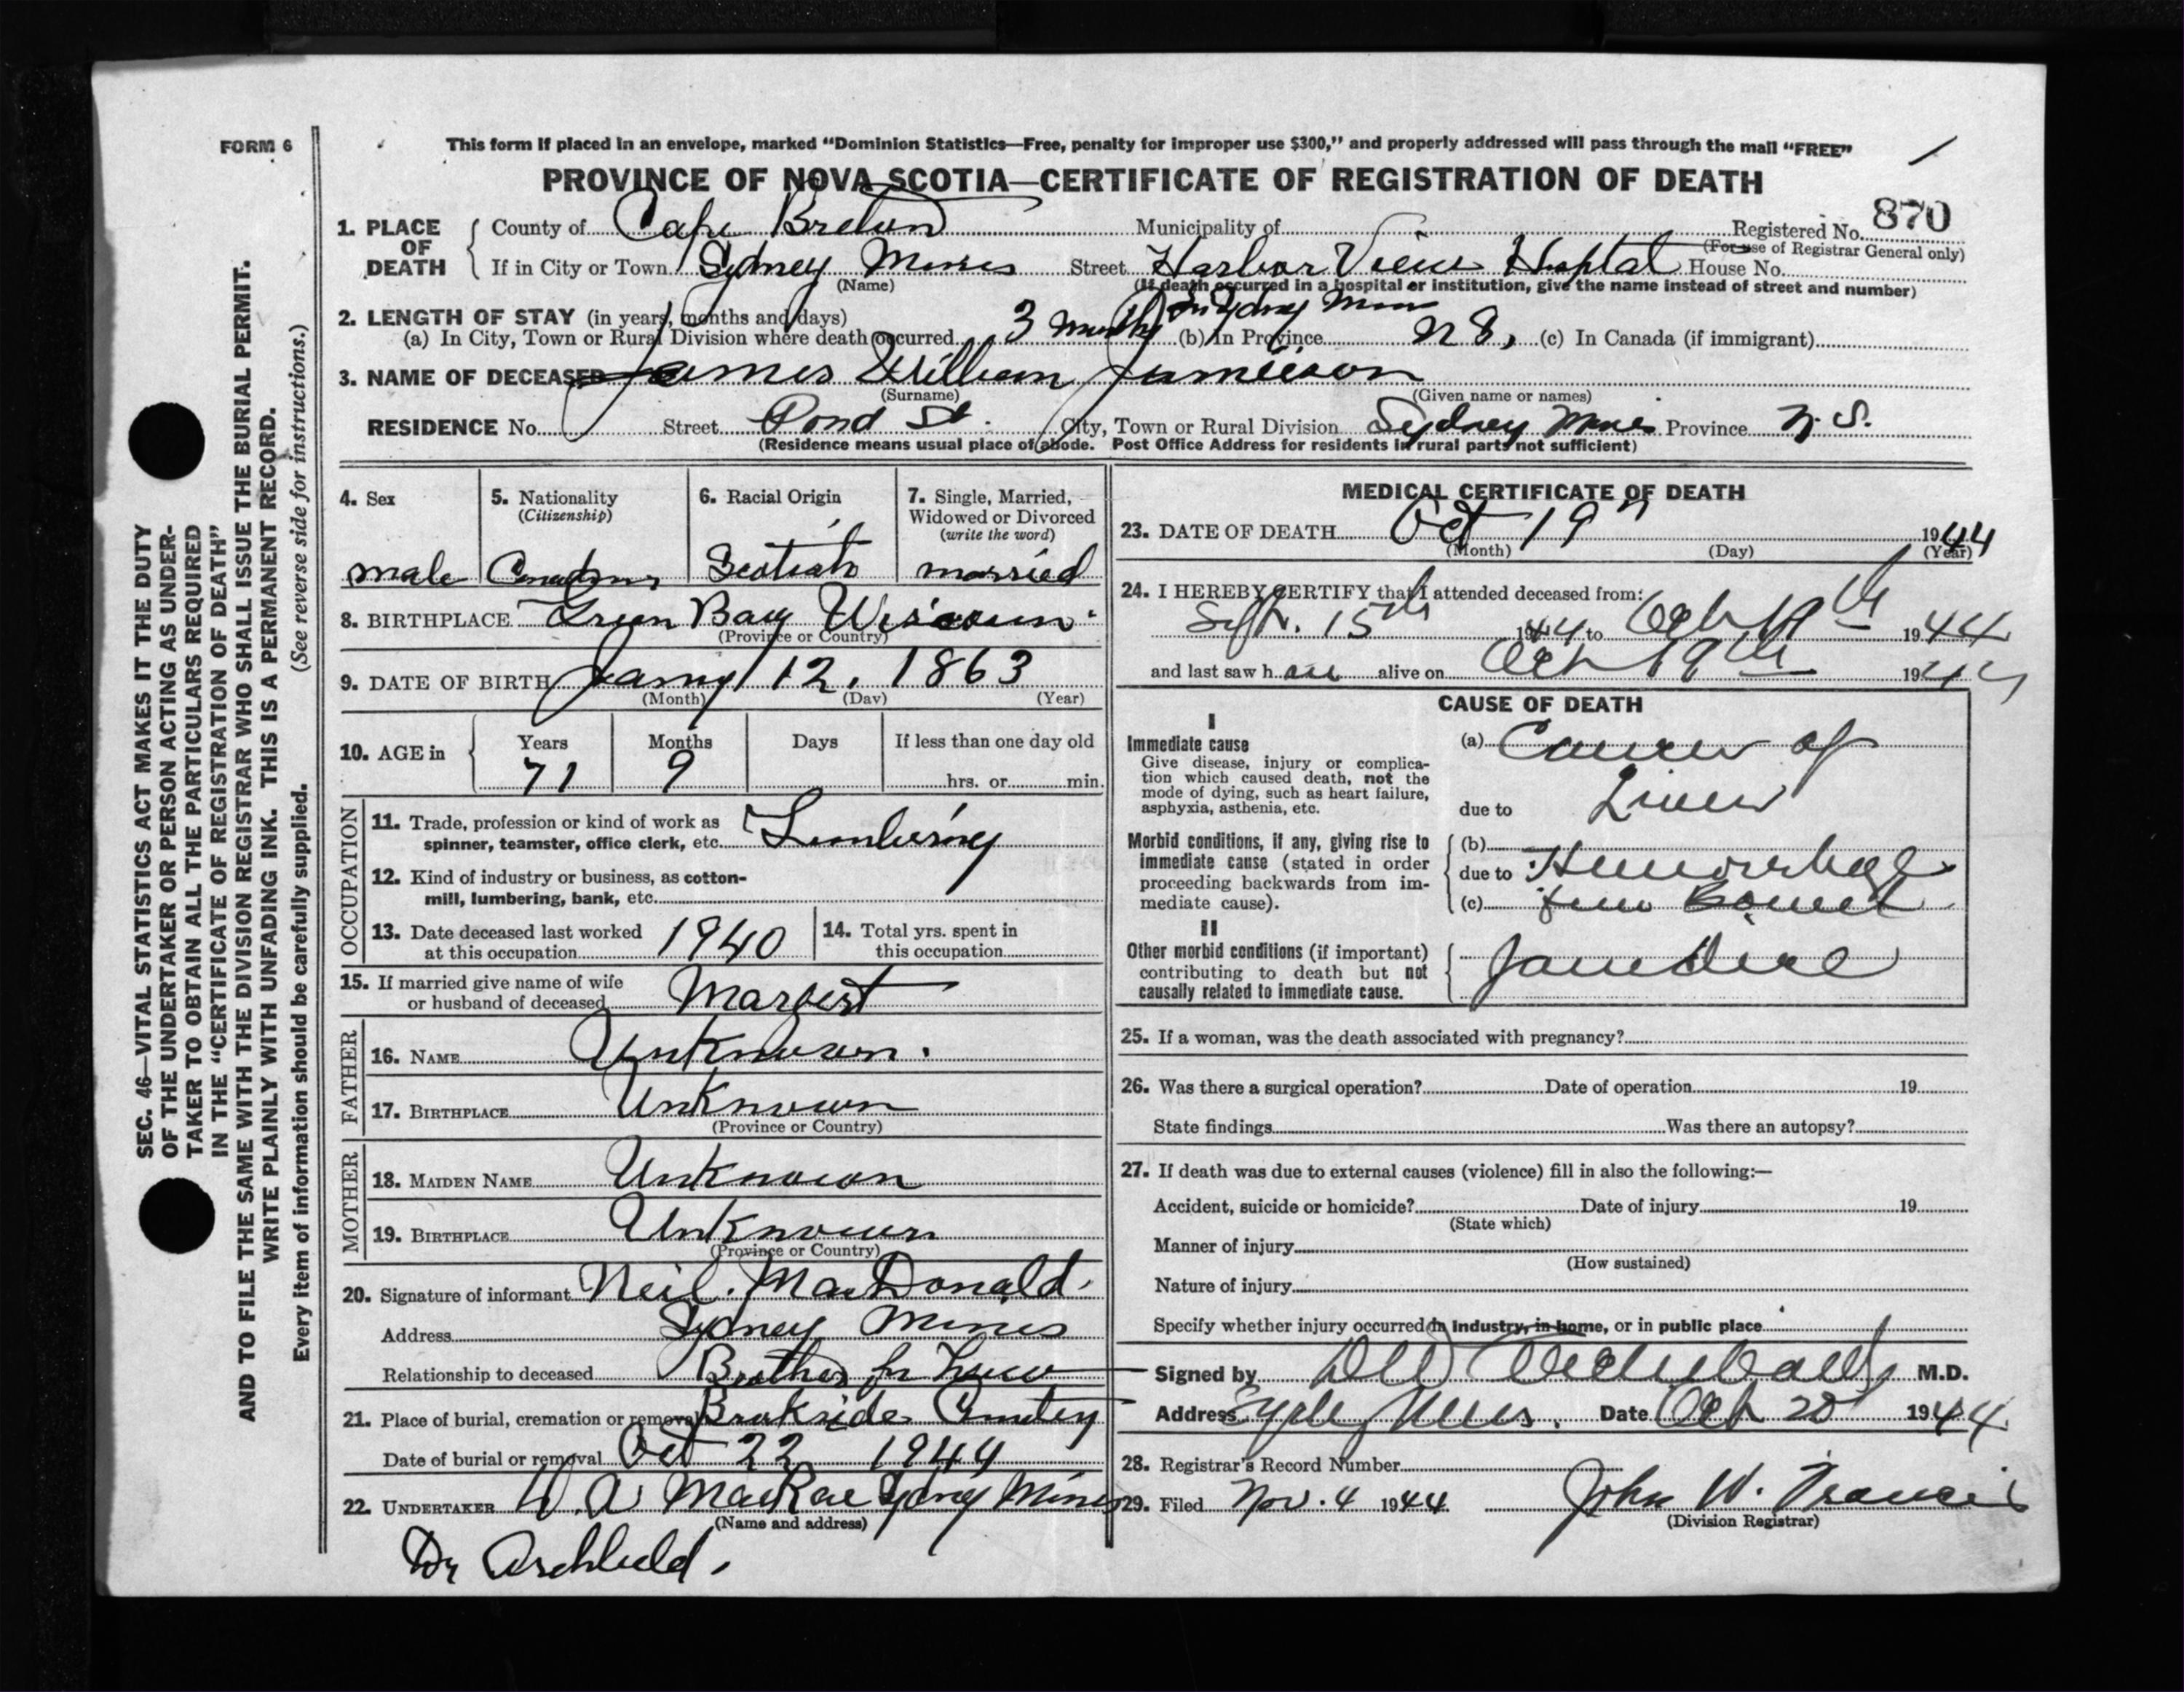 FORM 6
This form if placed in an envelope, marked “Dominion Statistics—Free, penalty for improper use $300,” and properly addressed will pass through the mail “FREE”
PROVINCE OF NOVA SCOTIA—CERTIFICATE OF REGISTRATION OF DEATH
1. PLACE OF DEATH
County of Cape Breton Municipality of Registered No. 870
(For use of Registrar General only)
If in City or Town Sydney Mines Street Harbor View Hospital House No.
(Name) (If death occurred in a hospital or institution, give the name instead of street and number)
2. LENGTH OF STAY (in years, months and days)
(a) In City, Town or Rural Division where death occurred 3 months In Sydney Mines (b) In Province N S, (c) In Canada (if immigrant)
3. NAME OF DECEASED James William Jamieson
(Surname) (Given name or names)
RESIDENCE No. Street Pond St. City, Town or Rural Division Sydney Mines Province N. S.
(Residence means usual place of abode. Post Office Address for residents in rural parts not sufficient)
4. Sex
male
5. Nationality
(Citizenship)
Canadian
6. Racial Origin
Scotish
7. Single, Married,
Widowed or Divorced
(write the word)
married
8. BIRTHPLACE Green Bay
(Province or Country)
9. DATE OF BIRTH 12, 1863
(Month) (Day) (Year)
10. AGE in
Years Months Days If less than one day old
71 9 hrs. or min.
OCCUPATION
11. Trade, profession or kind of work as
spinner, teamster, office clerk, etc. Lumbering
12. Kind of industry or business, as cotton-
mill, lumbering, bank, etc.
13. Date deceased last worked
at this occupation 1940
14. Total yrs. spent in
this occupation
15. If married give name of wife
or husband of deceased
FATHER
16. NAME Unknown.
17. BIRTHPLACE Unknown
(Province or Country)
MOTHER
18. MAIDEN NAME Unknown
19. BIRTHPLACE Unknown
(Province or Country)
20. Signature of informant Neil. MacDonald.
Address Sydney Mines
Relationship to deceased Brother in Law
21. Place of burial, cremation or removal Brookside Cemetery
Date of burial or removal Oct 22 1944
22. UNDERTAKER A MacRae Sydney Mines
(Name and address)
Dr Archbald.
MEDICAL CERTIFICATE OF DEATH
23. DATE OF DEATH Oct 19th 1944
(Month) (Day) (Year)
24. I HEREBY CERTIFY that I attended deceased from:
Sept. 15th 1944 to Oct 19th 1944
and last saw h alive on Oct 19th 1944
CAUSE OF DEATH
I
Immediate cause
Give disease, injury or complica-
tion which caused death, not the
mode of dying, such as heart failure,
asphyxia, asthenia, etc.
(a) Cancer of
due to Liver
Morbid conditions, if any, giving rise to
immediate cause (stated in order
proceeding backwards from im-
mediate cause).
(b)
due to Hemorrhage
(c) from Bowel
II
Other morbid conditions (if important)
contributing to death but not
causally related to immediate cause.
Jaundice
25. If a woman, was the death associated with pregnancy?
26. Was there a surgical operation? Date of operation 19
State findings Was there an autopsy?
27. If death was due to external causes (violence) fill in also the following:—
Accident, suicide or homicide? Date of injury 19
(State which)
Manner of injury
(How sustained)
Nature of injury
Specify whether injury occurred in industry, in home, or in public place
Signed by Archibald M.D.
Address Sydney Mines. Date Oct 20 1944
28. Registrar's Record Number
29. Filed Nov. 4 1944 John W. Francis
(Division Registrar)
SEC. 46—VITAL STATISTICS ACT MAKES IT THE DUTY
OF THE UNDERTAKER OR PERSON ACTING AS UNDER-
TAKER TO OBTAIN ALL THE PARTICULARS REQUIRED
IN THE “CERTIFICATE OF REGISTRATION OF DEATH”
AND TO FILE THE SAME WITH THE DIVISION REGISTRAR WHO SHALL ISSUE THE BURIAL PERMIT.
WRITE PLAINLY WITH UNFADING INK. THIS IS A PERMANENT RECORD.
Every item of information should be carefully supplied. (See reverse side for instructions.)